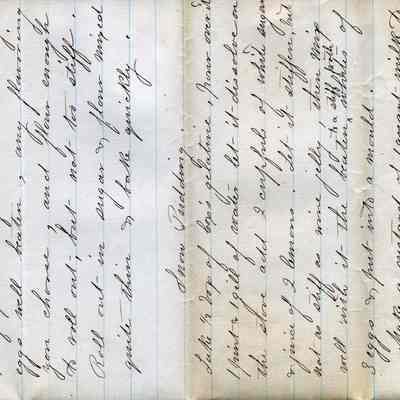 eggs well beaten, any flavoring
you choose, and flour enough
to roll out, but not too stiff.
Roll out in sugar & flour mixed
quite thin & bake quickly.
Snow Pudding.
Take ½ box of gelatine, pour over it
1 pint & 1 gill of water let it dissolve on
the stove add 2 cupfuls of white sugar
& juice of 2 lemons. Let it stiffen but
not as stiff as wine jelly then mix
well with it the beaten whites of
to a stiff froth
3 eggs & put into a mould.
Make a custard of 1 quart milk